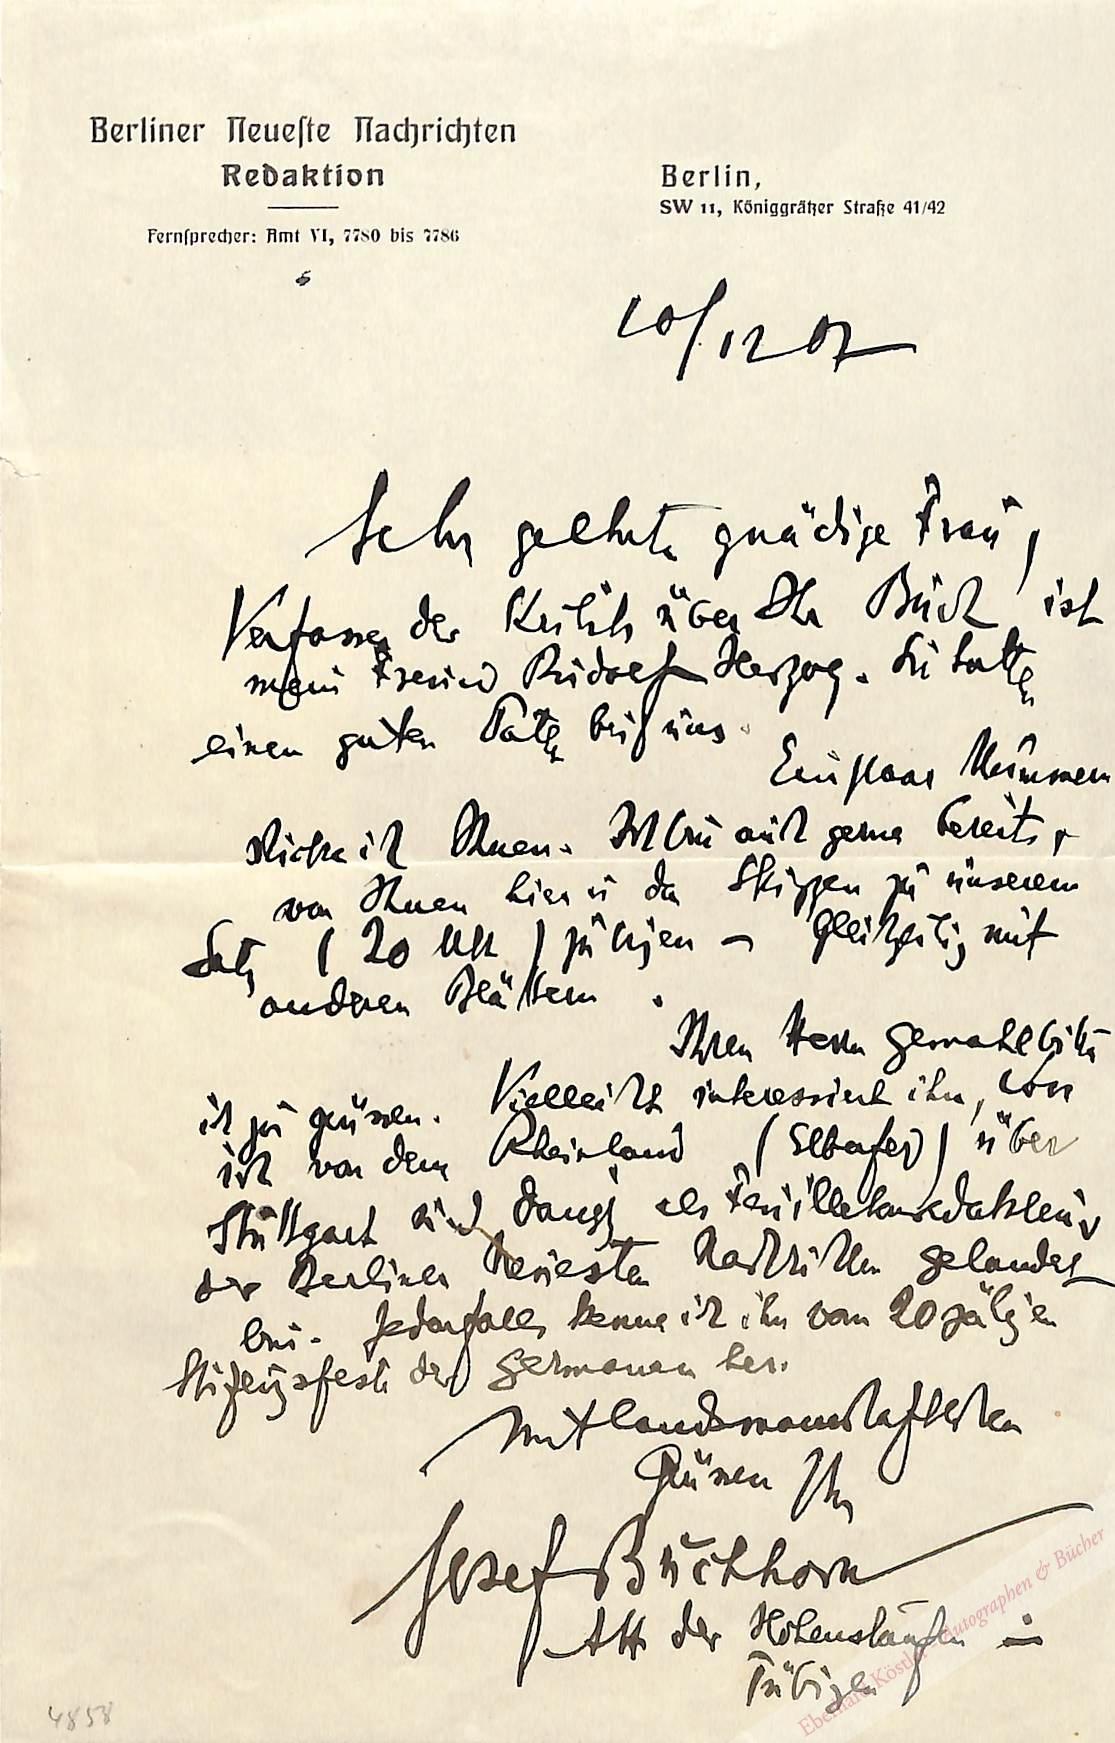 Berliner Neueste Nachrichten
Redaktion
Fernsprecher: Amt VI, 7780 bis 7786
Berlin,
SW 11, Königgrätzer Straße 41/42
10/12 07
Sehr geehrte gnädige Frau,
Verfasser der Kritik über Ihr Buch ist
mein Freund Rudolf Herzog. Sie hatten
einen guten Paten bei uns.
Ein paar Nummern
schicke ich Ihnen. Ich bin auch gerne bereit,
von Ihnen hier u da Skizzen zu unserem
Satz (20 Mk) zu bringen – gleichzeitig mit
anderen Blättern.
Ihren Herrn Gemahl bitte
ich zu grüssen. Vielleicht interessiert ihn, dass
ich von dem Rheinland (Elberfeld) über
Stuttgart und Danzig als Feuilletonredakteur
der Berliner Neuesten Nachrichten gelandet
bin. Jedenfalls kenne ich ihn vom 20 jährigen
Stiftungsfest der Germanen her.
Mit landsmannschaftlichen
Grüssen Ihr
Josef Buchhorn
AH der Hohenstaufen in
Tübingen
4858
Eberhard Köstler Autographen & Bücher